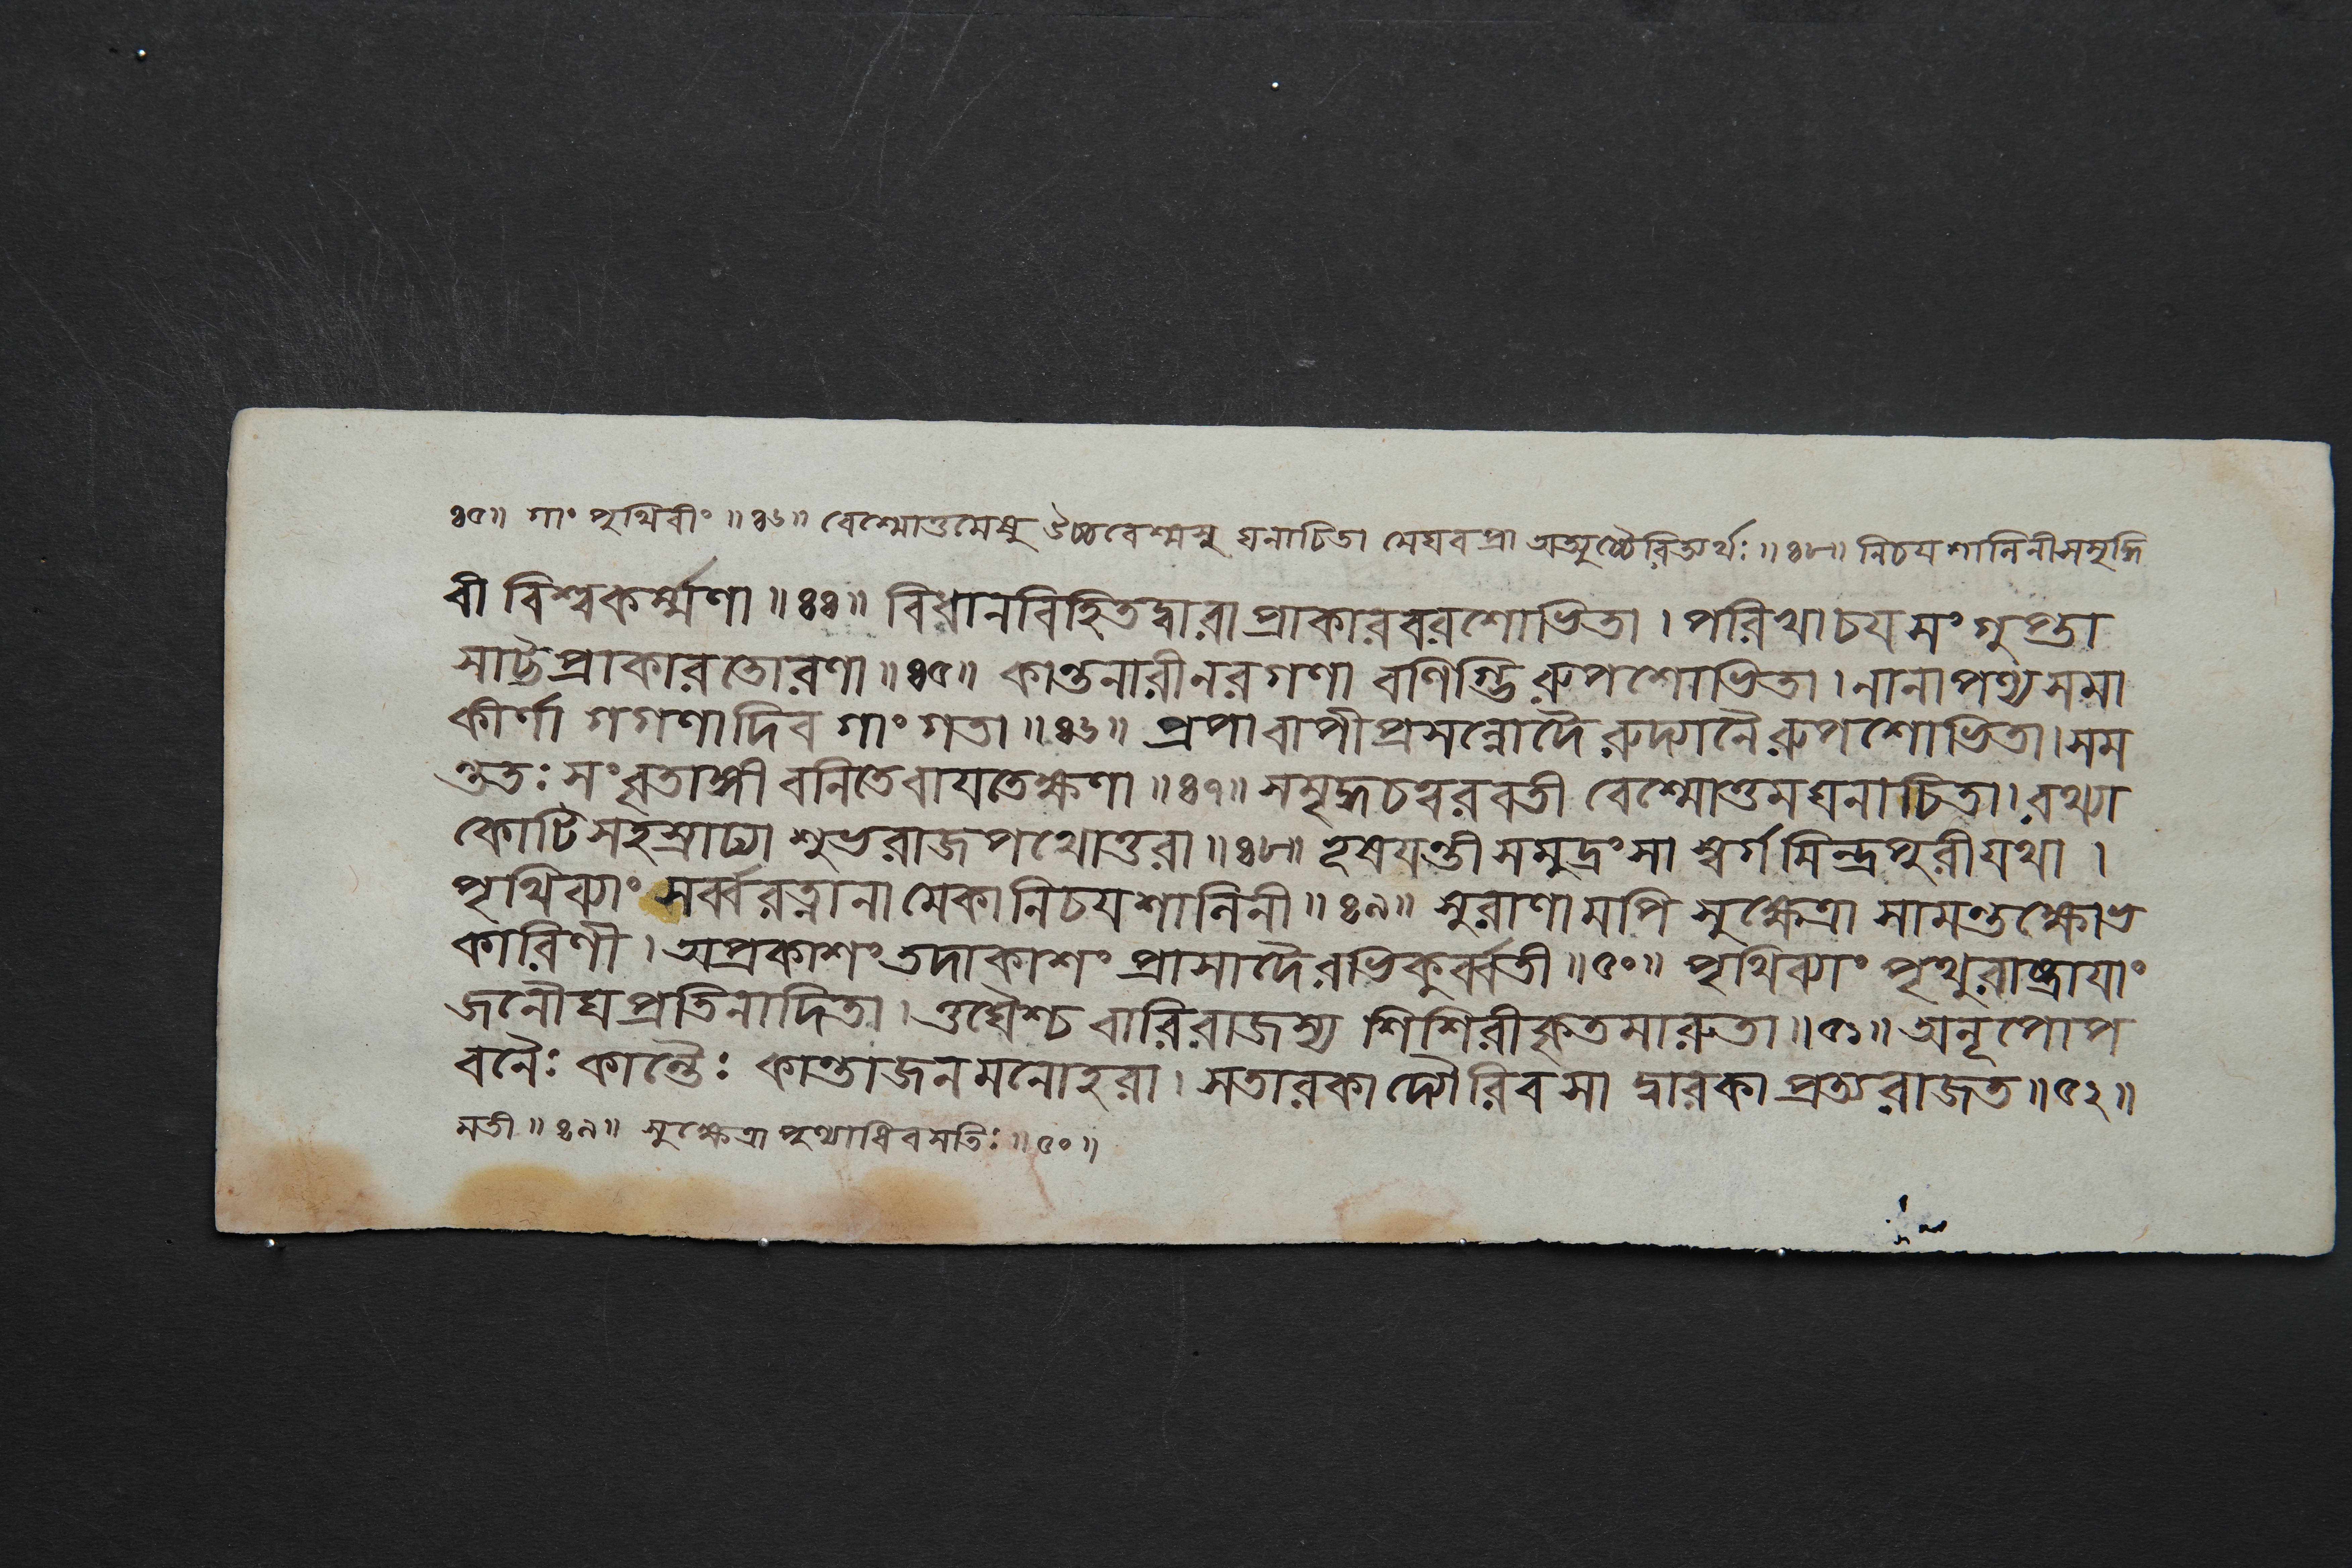 ৪৫॥ গাং পৃথিবীং ॥৪৬॥ বেশ্মোত্তমেষু উচ্চবেশ্মসু ঘনাচিতা মেঘবপ্রা অত্যুচ্চৈরিত্যর্থঃ ॥৪৮॥ নিচযশালিনীসমৃদ্ধি
বী বিশ্বকর্ম্মণা ॥৪৪॥ বিধানবিহিতদ্বারাপ্রাকারবরশোভিতা । পরিখাচযসংগুপ্তা
সাট্টপ্রাকারতোরণা ॥৪৫॥ কান্তনারীনরগণা বণিগ্ভিরুপশোভিতা । নানাপণ্যসমা
কীর্ণা গগণাদিব গাং গতা ॥৪৬॥ প্রপাবাপীপ্রসন্নোদৈরুদ্যানৈরুপশোভিতা । সম
ন্ততঃ সংবৃতাঙ্গী বনিতেবাযতেক্ষণা ॥৪৭॥ সমৃদ্ধচত্বরবতী বেশ্মোত্তমঘনাচিতা । রথ্যা
কোটিসহস্রাঢ্যা শুভ্ররাজপথোত্তরা ॥৪৮॥ হ্রেষযন্তী সমুদ্রং সা স্বর্গমিন্দ্রপুরীযথা ।
পৃথিব্যাং সর্ব্বরত্নানামেকানিচযশালিনী ॥৪৯॥ সুরাণামপি সুক্ষেত্রা সামন্তক্ষোভ
কারিণী । অপ্রকাশং তদাকাশং প্রাসাদৈরভিকুর্ব্বতী ॥৫০॥ পৃথিব্যাং পৃথুরাষ্ট্রাযাং
জনৌঘপ্রতিনাদিতা । ওঘৈশ্চ বারিরাজস্য শিশিরীকৃতমারুতা ॥৫১॥ অনূপোপ
বনৈঃ কান্তৈঃ কান্তাজনমনোহরা । সতারকা দ্যৌরিব সা দ্বারকা প্রত্যরাজত ॥৫২॥
মতী ॥৪৯॥ সুক্ষেত্রা পুণ্যাধিবসতিঃ ॥৫০॥